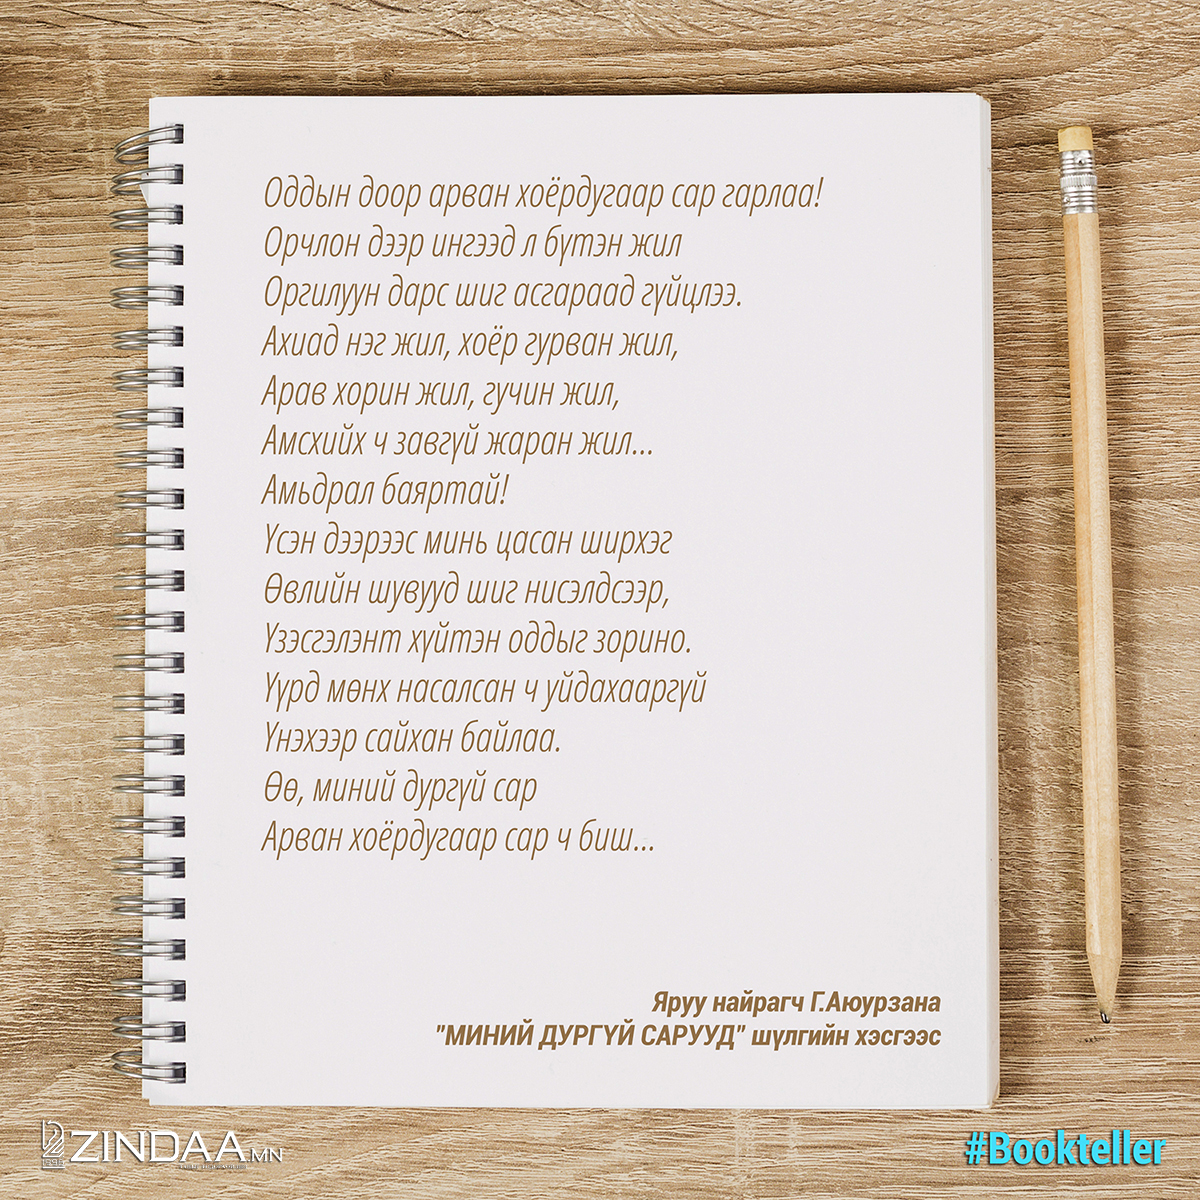 Оддын доор арван хоёрдугаар сар гарлаа!
Орчлон дээр ингээд л бүтэн жил
Оргилуун дарс шиг асгараад гүйцлээ.
Ахиад нэг жил, хоёр гурван жил,
Арав хорин жил, гучин жил,
Амсхийх ч завгүй жаран жил...
Амьдрал баяртай!
Үсэн дээрээс минь цасан ширхэг
Өвлийн шувууд шиг нисэлдсээр,
Үзэсгэлэнт хүйтэн оддыг зорино.
Үүрд мөнх насалсан ч уйдахааргүй
Үнэхээр сайхан байлаа.
Өө, миний дургүй сар
Арван хоёрдугаар сар ч биш...
Яруу найрагч Г.Аюурзана
"МИНИЙ ДУРГҮЙ САРУУД" шүлгийн хэсгээс
ZINDAA.MN
1998
#Bookteller